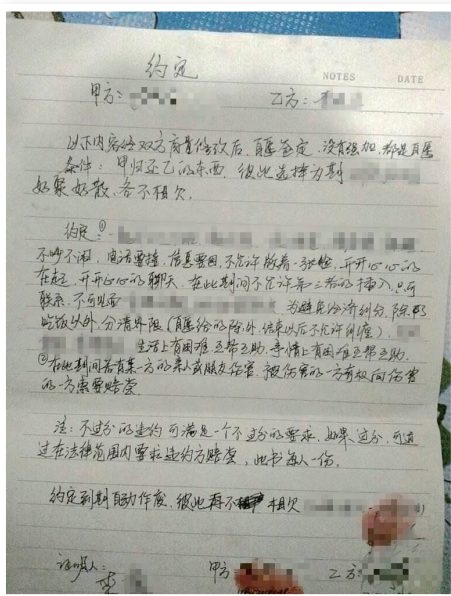 约定
NOTES DATE
甲方: 乙方:
以下内容经双方商量修改后,自愿签定,没有强加,都是自愿
条件:甲归还乙的东西,彼此选择为期
好聚好散,各不相欠。
约定:①
不吵不闹,电话要接,信息要回,不允许板着一张脸,开开心心的
在起,开开心心的聊天,在此期间不允许第三者的插入,只可
联系,不可见面 为避免经济纠纷,除
吃饭以外,分清界限(自愿给的除外,结束以后不允许纠缠)
生活上有困难互帮互助,事情上有困难互帮互助.
②在此期间若有某一方的亲人或朋友伤害,被伤害的一方有权向伤害
的一方索要赔偿.
注:不过分的违约可满足一个不过分的要求,如果过分,可通
过在法律范围内要求违约方赔偿,此书每人一份,
约定到期自动作废,彼此再不相欠
证明人: 甲方 乙方:
李